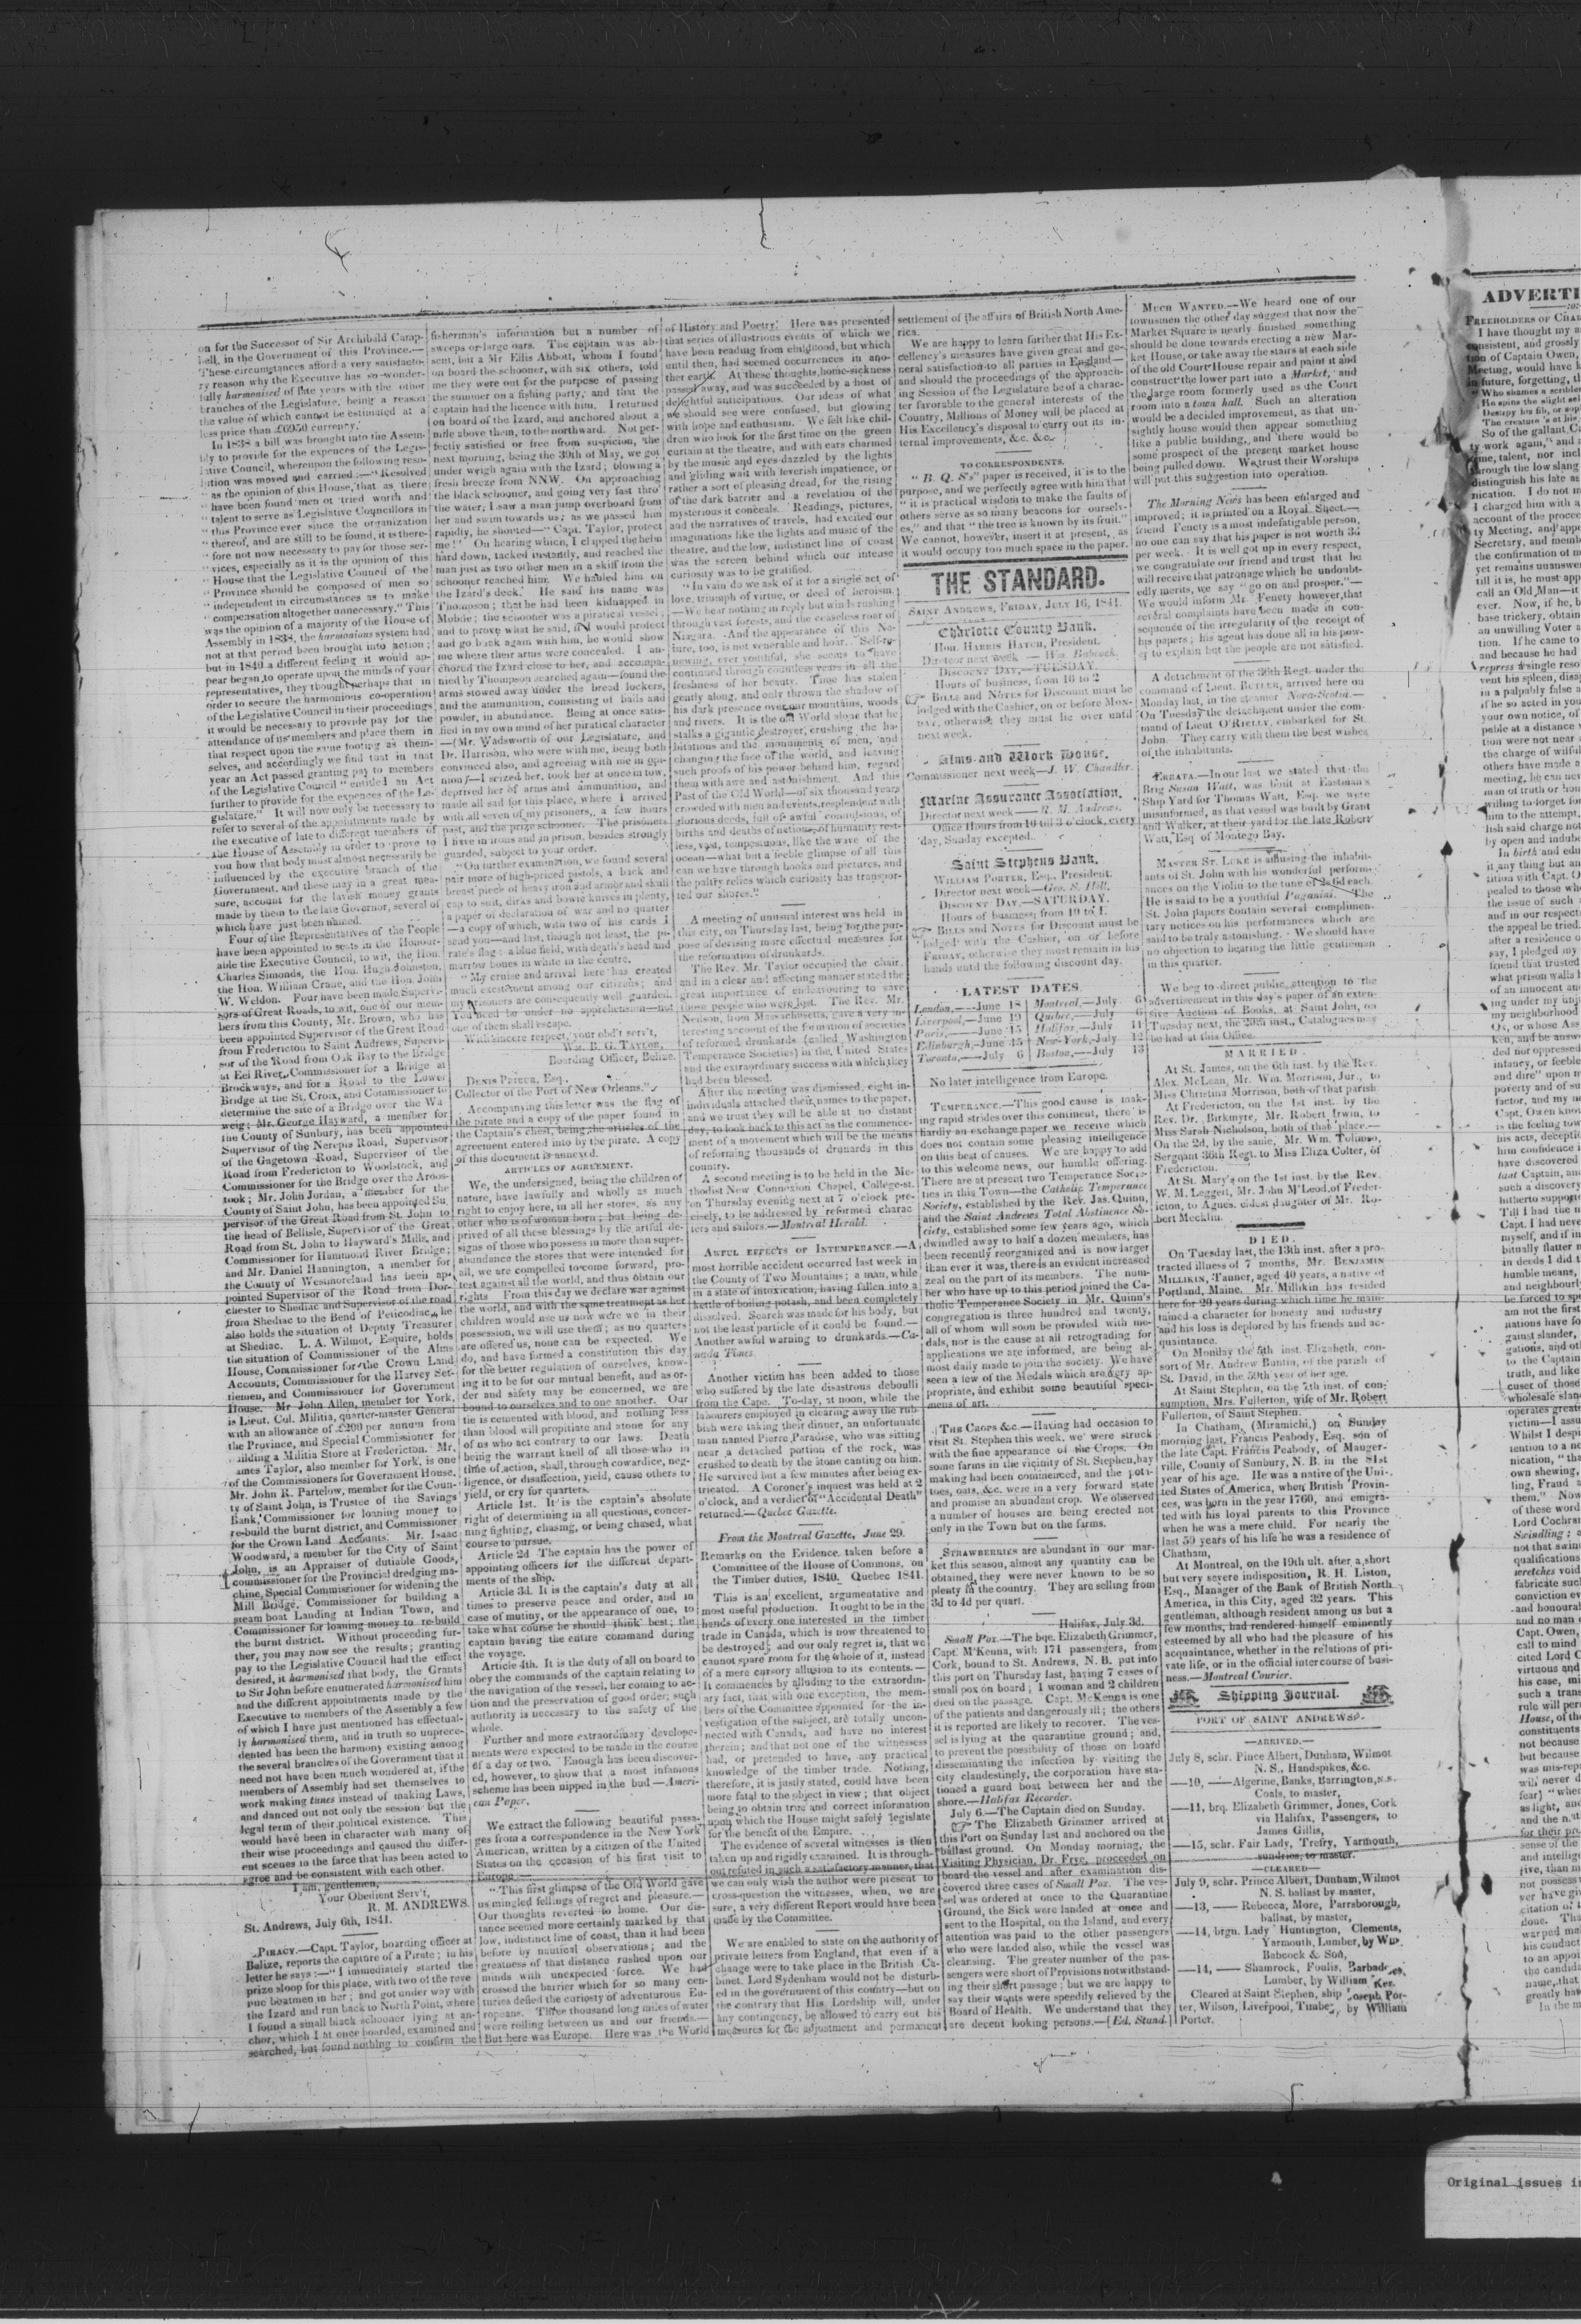 on for the Successor of Sir Archibald Camp-
bell, in the Government of this Province.—
These circumstances afford a very satisfacto-
ry reason why the Executive has so wonder-
fully harmonised of late years with the other
branches of the Legislature, being a reason
the value of which cannot be estimated at a
less price than £6950 currency.
In 1838 a bill was brought into the Assem-
bly to provide for the expences of the Legis-
lative Council, whereupon the following reso-
lution was moved and carried:—"Resolved
" as the opinion of this House, that as there
" have been found men of tried worth and
" talent to serve as Legislative Councillors in
" this Province ever since the organization
" thereof, and are still to be found, it is there-
" fore not now necessary to pay for those ser-
" vices, especially as it is the opinion of this
" House that the Legislative Council of the
" Province should be composed of men so
" independent in circumstances as to make
" compensation altogether unnecessary." This
was the opinion of a majority of the House of
Assembly in 1838, the harmonious system had
not at that period been brought into action;
but in 1840 a different feeling it would ap-
pear began to operate upon the minds of your
representatives, they thought perhaps that in
order to secure the harmonious co-operation
of the Legislative Council in their proceedings
it would be necessary to provide pay for the
attendance of its members and place them in
that respect upon the same footing as them-
selves, and accordingly we find that in that
year an Act passed granting pay to members
of the Legislative Council " entitled an Act
further to provide for the expences of the Le-
gislature." It will now only be necessary to
refer to several of the appointments made by
the executive of late to different members of
the House of Assembly in order to prove to
you how that body must almost necessarily be
influenced by the executive branch of the
Government, and these may in a great mea-
sure, account for the lavish money grants
made by them to the late Governor, several of
which have just been named.
Four of the Representatives of the People
have been appointed to seats in the Honour-
able the Executive Council, to wit, the Hon.
Charles Simonds, the Hon. Hugh Johnston,
the Hon. William Crane, and the Hon. John
W. Weldon. Four have been made Supervi-
sors of Great Roads, to wit, one of our mem-
bers from this County, Mr. Brown, who has
been appointed Supervisor of the Great Road
from Fredericton to Saint Andrews, Supervi-
sor of the Road from Oak Bay to the Bridge
at Eel River, Commissioner for a Bridge at
Brockways, and for a Road to the Lower
Bridge at the St. Croix, and Commissioner to
determine the site of a Bridge over the Wa
weig; Mr. George Hayward, a member for
the County of Sunbury, has been appointed
Supervisor of the Nerepis Road, Supervisor
of the Gagetown Road, Supervisor of the
Road from Fredericton to Woodstock, and
Commissioner for the Bridge over the Aroos-
took; Mr. John Jordan, a member for the
County of Saint John, has been appointed Su
pervisor of the Great Road from St. John to
the head of Bellisle, Supervisor of the Great
Road from St. John to Hayward's Mills, and
Commissioner for Hammond River Bridge;
and Mr. Daniel Hannington, a member for
the County of Westmoreland has been ap-
pointed Supervisor of the Road from Dor-
chester to Shediac and Supervisor of the road
from Shediac to the Bend of Peticodiac, he
also holds the situation of Deputy Treasurer
at Shediac. L. A. Wilmot, Esquire, holds
the situation of Commissioner of the Alms
House, Commissioner for the Crown Land
Accounts, Commissioner for the Harvey Set-
tlement, and Commissioner for Government
House. Mr John Allen, member for York,
is Lieut. Col. Militia, quarter-master General
with an allowance of £200 per annum from
the Province, and Special Commissioner for
building a Militia Store at Fredericton. Mr.
James Taylor, also member for York, is one
of the Commissioners for Government House.
Mr. John R. Partelow, member for the Coun-
ty of Saint John, is Trustee of the Savings
Bank, Commissioner for loaning money to
re-build the burnt district, and Commissioner
for the Crown Land Accounts. Mr. Isaac
Woodward, a member for the City of Saint
John, is an Appraiser of dutiable Goods,
commissioner for the Provincial dredging ma-
chine, Special Commissioner for widening the
Mill Bridge, Commissioner for building a
steam boat Landing at Indian Town, and
Commissioner for loaning money to re-build
the burnt district. Without proceeding fur-
ther, you may now see the results; granting
pay to the Legislative Council had the effect
desired, it harmonised that body, the Grants
to Sir John before enumerated harmonised him
and the different appointments made by the
Executive to members of the Assembly a few
of which I have just mentioned has effectual-
ly harmonised them, and in truth so unprece-
dented has been the harmony existing among
the several branches of the Government that it
need not have been much wondered at, if the
members of Assembly had set themselves to
work making tunes instead of making Laws,
and danced out not only the session but the
legal term of their political existence. This
would have been in character with many of
their wise proceedings and caused the differ-
ent scenes in the farce that has been acted to
agree and be consistent with each other.
I am, gentlemen,
Your Obedient Serv't,
R. M. ANDREWS.
St. Andrews, July 6th, 1841.
PIRACY.—Capt. Taylor, boarding officer at
Belize, reports the capture of a Pirate; in his
letter he says:—"I immediately started the
prize sloop for this place, with two of the reve
nue boatmen in her; and got under way with
the Izard and run back to North Point, where
I found a small black schooner lying at an-
chor, which I at once boarded, examined and
searched, but found nothing to confirm the
fisherman's information but a number of
sweeps or large oars. The captain was ab-
sent, but a Mr Ellis Abbott, whom I found
on board the schooner, with six others, told
me they were out for the purpose of passing
the summer on a fishing party, and that the
captain had the licence with him. I returned
on board of the Izard, and anchored about a
mile above them, to the northward. Not per-
fectly satisfied or free from suspicion, the
next morning, being the 30th of May, we got
under weigh again with the Izard; blowing a
fresh breeze from NNW. On approaching
the black schooner, and going very fast thro'
the water, I saw a man jump overboard from
her and swim towards us; as we passed him
rapidly, he shouted—"Capt. Taylor, protect
me!" On hearing which, I clapped the helm
hard down, tacked instantly, and reached the
man just as two other men in a skiff from the
schooner reached him. We hauled him on
the Izard's deck. He said his name was
Thompson; that he had been kidnapped in
Mobile; the schooner was a piratical vessel;
and to prove what he said, if I would protect
and go back again with him, he would show
me where their arms were concealed. I an-
chored the Izard close to her, and accompa-
nied by Thompson searched again—found the
arms stowed away under the bread lockers,
and the ammunition, consisting of balls and
powder, in abundance. Being at once satis-
fied in my own mind of her piratical character
—(Mr. Wadsworth of our Legislature, and
Dr. Harrison, who were with me, being both
convinced also, and agreeing with me in opi-
nion)—I seized her, took her at once in tow,
deprived her of arms and ammunition, and
made all sail for this place, where I arrived
with all seven of my prisoners, a few hours
past, and the prize schooner. The prisoners
I have in irons and in prison, besides strongly
guarded, subject to your order.
"On farther examination, we found several
pair more of high-priced pistols, a back and
breast piece of heavy iron and armor and skull
cap to suit, dirks and bowie knives in plenty,
a paper of declaration of war and no quarter
—a copy of which, with two of his cards I
send you—and last, though not least, the pi-
rate's flag: a blue field, with death's head and
marrow bones in white in the centre.
"My cruise and arrival here has created
much excitement among our citizens; and
my prisoners are consequently well guarded.
You need be under no apprehension—not
one of them shall escape.
With sincere respect, your obd't serv't,
WM. B. G. TAYLOR,
Boarding Officer, Belize.
DENIS PRIEUR, Esq.,
Collector of the Port of New Orleans."
Accompanying this letter was the flag of
the pirate and a copy of the paper found in
the Captain's chest, being the articles of the
agreement entered into by the pirate. A copy
of this document is annexed.
ARTICLES OF AGREEMENT.
We, the undersigned, being the children of
nature, have lawfully and wholly as much
right to enjoy here, in all her stores, as any
other who is of woman born; but being de-
prived of all these blessings by the artful de-
signs of those who possess in more than super-
abundance the stores that were intended for
all, we are compelled to come forward, pro-
test against all the world, and thus obtain our
rights From this day we declare war against
the world, and with the same treatment as her
children would use us now were we in their
possession, we will use them; as no quarters
are offered us, none can be expected. We
do, and have formed a constitution this day
for the better regulation of ourselves, know-
ing it to be for our mutual benefit, and as or-
der and safety may be concerned, we are
bound to ourselves and to one another. Our
tie is cemented with blood, and nothing less
than blood will propitiate and atone for any
of us who act contrary to our laws. Death
being the warrant knell of all those who in
time of action, shall, through cowardice, neg-
ligence, or disaffection, yield, cause others to
yield, or cry for quarters.
Article 1st. It is the captain's absolute
right of determining in all questions, concer-
ning fighting, chasing, or being chased, what
course to pursue.
Article 2d The captain has the power of
appointing officers for the different depart-
ments of the ship.
Article 3d. It is the captain's duty at all
times to preserve peace and order, and in
case of mutiny, or the appearance of one, to
take what course he should think best; the
captain having the entire command during
the voyage.
Article 4th. It is the duty of all on board to
obey the commands of the captain relating to
the navigation of the vessel, her coming to ac-
tion and the preservation of good order; such
authority is necessary to the safety of the
whole.
Further and more extraordinary develope-
ments were expected to be made in the course
of a day or two. Enough has been discover-
ed, however, to show that a most infamous
scheme has been nipped in the bud—Ameri-
can Paper.
We extract the following beautiful passa-
ges from a correspondence in the New York
American, written by a citizen of the United
States on the occasion of his first visit to
Europe:—
"This first glimpse of the Old World gave
us mingled fellings of regret and pleasure.—
Our thoughts reverted to home. Our dis-
tance seemed more certainly marked by that
low, indistinct line of coast, than it had been
before by nautical observations; and the
greatness of that distance rushed upon our
minds with unexpected force. We had
crossed the barrier which for so many cen-
turies defied the curiosty of adventurous Eu-
ropeans. Three thousand long miles of water
were rolling between us and our friends.—
But here was Europe. Here was the World
of History and Poetry. Here was presented
that series of illustrious events of which we
have been reading from childhood, but which
until then, had seemed occurrences in ano-
ther earth. At these thoughts, home-sickness
passed away, and was succeeded by a host of
delightful anticipations. Our ideas of what
we should see were confused, but glowing
with hope and enthusiam. We felt like chil-
dren who look for the first time on the green
curtain at the theatre, and with ears charmed
by the music and eyes dazzled by the lights
and gliding wait with feverish impatience, or
rather a sort of pleasing dread, for the rising
of the dark barrier and a revelation of the
mysterious it conceals. Readings, pictures,
and the narratives of travels, had excited our
imaginations like the lights and music of the
theatre, and the low, indistinct line of coast
was the screen behind which our intense
curiosity was to be gratified.
"In vain do we ask of it for a single act of
love, triumph of virtue, or deed of heroism.
—We hear nothing in reply but winds rushing
through vast forests, and the ceaseless roar of
Niagara. And the appearance of this Na-
ture, too, is not venerable and hoar. Self-re-
newing, ever youthful, she seems to have
continued through countless years in all the
freshness of her beauty. Time has stolen
gently along, and only thrown the shadow of
his dark presence over our mountains, woods
and rivers. It is the old World alone that he
stalks a gigantic destroyer, crushing the ha-
bitations and the monuments of men, and
changing the face of the world, and leaving
such proofs of his power behind him, regard
them with awe and astonishment. And this
Past of the Old World—of six thousand years
crowded with men and events, resplendent with
glorious deeds, full of awful convulsions, of
births and deaths of nations, of humanity rest-
less, vast, tempestuous, like the wave of the
ocean—what but a feeble glimpse of all this
can we have through books and pictures, and
the paltry relics which curiosity has transpor-
ted our shores."
A meeting of unusual interest was held in
this city, on Thursday last, being for the pur-
pose of devising more effectual measures for
the reformation of drunkards.
The Rev. Mr. Taylor occupied the chair,
and in a clear and affecting manner stated the
great importance of endeavouring to save
those people who were lost. The Rev. Mr.
Neelson, from Massachusetts, gave a very in-
teresting account of the formation of societies
of reformed drunkards (called Washington
Temperance Societies) in the United States
and the extraordinary success with which they
had been blessed.
After the meeting was dismissed, eight in-
individuals attached their names to the paper,
and we trust they will be able at no distant
day, to look back to this act as the commence-
ment of a movement which will be the means
of reforming thousands of drunards in this
country.
A second meeting is to be held in the Me-
thodist New Connexion Chapel, College-st.
on Thursday evening next at 7 o'clock pre-
cisely, to be addressed by reformed charac-
ters and sailors.—Montreal Herald.
AWFUL EFFECTS OF INTEMPERANCE.—A
most horrible accident occurred last week in
the County of Two Mountains; a man, while
in a state of intoxication, having fallen into a
kettle of boiling potash, and been completely
dissolved. Search was made for his body, but
not the least particle of it could be found.—
Another awful warning to drunkards.—Ca-
nada Times.
Another victim has been added to those
who suffered by the late disastrous deboulli
from the Cape. To-day, at noon, while the
labourers employed in clearing away the rub-
bish were taking their dinner, an unfortunate
man named Pierre Paradise, who was sitting
near a detached portion of the rock, was
crushed to death by the stone canting on him.
He survived but a few minutes after being ex-
tricated. A Coroner's inquest was held at 2
o'clock, and a verdict of "Accidental Death"
returned.—Quebec Gazette.
From the Montreal Gazette, June 29.
Remarks on the Evidence, taken before a
Committee of the House of Commons, on
the Timber duties, 1840. Quebec 1841.
This is an excellent, argumentative and
most useful production. It ought to be in the
hands of every one interested in the timber
trade in Canada, which is now threatened to
be destroyed; and our only regret is, that we
cannot spare room for the whole of it, instead
of a mere cursory allusion to its contents.—
It commences by alluding to the extraordin-
ary fact, that with one exception, the mem-
bers of the Committee appointed for the in-
vestigation of the subject, are totally uncon-
nected with Canada, and have no interest
therein; and that not one of the witnesses
had, or pretended to have, any practical
knowledge of the timber trade. Nothing,
therefore, it is justly stated, could have been
more fatal to the object in view; that object
being to obtain true and correct information
upon which the House might safely legislate
for the benefit of the Empire.
The evidence of several witnesses is then
taken up and rigidly examined. It is through-
out refuted in such a satisfactory manner, that
we can only wish the author were present to
cross-question the witnesses, when, we are
sure, a very different Report would have been
made by the Committee.
We are enabled to state on the authority of
private letters from England, that even if a
change were to take place in the British Ca-
binet, Lord Sydenham would not be disturb-
ed in the government of this country—but on
the contrary that His Lordship will, under
any contingency, be allowed to carry out his
measures for the adjustment and permanent
settlement of the affairs of British North Ame-
rica.
We are happy to learn further that His Ex-
cellency's measures have given great and ge-
neral satisfaction to all parties in England—
and should the proceedings of the approach-
ing Session of the Legislature be of a charac-
ter favorable to the general interests of the
Country, Millions of Money will be placed at
His Excellency's disposal to carry out its in-
ternal improvements, &c. &c.
TO CORRESPONDENTS.
"B. Q. S's" paper is received, it is to the
purpose, and we perfectly agree with him that
"it is practical wisdom to make the faults of
others serve as so many beacons for ourselv-
es," and that "the tree is known by its fruit."
We cannot, however, insert it at present, as
it would occupy too much space in the paper.
THE STANDARD.
SAINT ANDREWS, FRIDAY, JULY 16, 1841.
Charlotte County Bank.
Hon. HARRIS HATCH, President.
Director next week — Wm. Babcock.
DISCOUNT DAY,—TUESDAY.
Hours of business, from 10 to 2
BILLS and NOTES for Discount must be
lodged with the Cashier, on or before MON-
DAY, otherwise they must lie over until
next week.
Alms and Work House.
Commissioner next week—J. W. Chandler.
Marine Assurance Association.
Director next week — R. M. Andrews.
Office Hours from 10 till 3 o'clock, every
day, Sunday excepted.
Saint Stephens Bank.
WILLIAM PORTER, Esq., President.
Director next week—Geo. S. Hill.
DISCOUNT DAY,—SATURDAY.
Hours of business; from 10 to 1.
BILLS and NOTES for Discount must be
lodged with the Cashier, on or before
FRIDAY, otherwise they must remain in his
hands until the following discount day.
LATEST DATES.
London,—June 18 | Montreal,—July 6
Liverpool,—June 19 | Quebec,—July 6
Paris,—June 15 | Halifax,—July 11
Edinburgh,—June 15 | New-York,—July 12
Toronto,—July 6 | Boston,—July 13
No later intelligence from Europe.
TEMPERANCE.—This good cause is mak-
ing rapid strides over this continent, there is
hardly an exchange paper we receive which
does not contain some pleasing intelligence
on this best of causes. We are happy to add
to this welcome news, our humble offering.
There are at present two Temperance Socie-
ties in this Town—the Catholic Temperance
Society, established by the Rev. Jas. Quinn,
and the Saint Andrews Total Abstinence So-
ciety, established some few years ago, which
dwindled away to half a dozen members, has
been recently reorganized and is now larger
than ever it was, there is an evident increased
zeal on the part of its members. The num-
ber who have up to this period joined the Ca-
tholic Temperance Society in Mr. Quinn's
congregation is three hundred and twenty,
all of whom will soon be provided with me-
dals, nor is the cause at all retrograding for
applications we are informed, are being al-
most daily made to join the society. We have
seen a few of the Medals which are very ap-
propriate, and exhibit some beautiful speci-
mens of art.
THE CROPS &c.—Having had occasion to
visit St. Stephen this week, we were struck
with the fine appearance of the Crops. On
some farms in the vicinity of St. Stephen, hay
making had been commenced, and the pota-
toes, oats, &c. were in a very forward state
and promise an abundant crop. We observed
a number of houses are being erected not
only in the Town but on the farms.
STRAWBERRIES are abundant in our mar-
ket this season, almost any quantity can be
obtained, they were never known to be so
plenty in the country. They are selling from
3d to 4d per quart.
Halifax, July 3d.
Small Pox.—The bqe. Elizabeth Grimmer,
Capt. M'Kenna, with 171 passengers, from
Cork, bound to St. Andrews, N. B. put into
this port on Thursday last, having 7 cases of
small pox on board; 1 woman and 2 children
died on the passage. Capt. McKenna is one
of the patients and dangerously ill; the others
it is reported are likely to recover. The ves-
sel is lying at the quarantine ground; and,
to prevent the possibility of those on board
disseminating the infection by visiting the
city clandestinely, the corporation have sta-
tioned a guard boat between her and the
shore.—Halifax Recorder.
July 6.—The Captain died on Sunday.
The Elizabeth Grimmer arrived at
this Port on Sunday last and anchored on the
ballast ground. On Monday morning, the
Visiting Physician, Dr. Frye, proceeded on
board the vessel and after examination dis-
covered three cases of Small Pox. The ves-
sel was ordered at once to the Quarantine
Ground, the Sick were landed at once and
sent to the Hospital, on the Island, and every
attention was paid to the other passengers
who were landed also, while the vessel was
cleansing. The greater number of the pas-
sengers were short of Provisions notwithstand-
ing their short passage; but we are happy to
say their wants were speedily relieved by the
Board of Health. We understand that they
are decent looking persons.—[Ed. Stand.]
MUCH WANTED.—We heard one of our
townsmen the other day suggest that now the
Market Square is nearly finished something
should be done towards erecting a new Mar-
ket House, or take away the stairs at each side
of the old Court House repair and paint it and
construct the lower part into a Market, and
the large room formerly used as the Court
room into a town hall. Such an alteration
would be a decided improvement, as that un-
sightly house would then appear something
like a public building, and there would be
some prospect of the present market house
being pulled down. We trust their Worships
will put this suggestion into operation.
The Morning News has been enlarged and
improved; it is printed on a Royal Sheet.—
friend Fenety is a most indefatigable person,
no one can say that his paper is not worth 3d
per week. It is well got up in every respect,
we congratulate our friend and trust that he
will receive that patronage which he undoubt-
edly merits, we say "go on and prosper."—
We would inform Mr. Fenety however, that
several complaints have been made in con-
sequence of the irregularity of the receipt of
his papers; his agent has done all in his pow-
er to explain but the people are not satisfied.
A detachment of the 36th Regt. under the
command of Lieut. BUTLER, arrived here on
Monday last, in the steamer Nova-Scotia.—
On Tuesday the detachment under the com-
mand of Lieut O'RIELLY, embarked for St.
John. They carry with them the best wishes
of the inhabitants.
ERRATA.—In our last we stated that the
Brig Susan Watt, was built at Eastman's
Ship Yard for Thomas Watt, Esq. we were
misinformed, as that vessel was built by Grant
and Walker, at their yard for the late Robert
Watt, Esq of Montego Bay.
MASTER ST. LUKE is amusing the inhabit-
ants of St. John with his wonderful perform-
ances on the Violin to the tune of 2s 6d each.
He is said to be a youthful Paganini. The
St. John papers contain several complimen-
tary notices on his performances which are
said to be truly astonishing. We should have
no objection to hearing the little gentleman
in this quarter.
We beg to direct public attention to the
advertisement in this day's paper of an exten-
sive Auction of Books, at Saint John, on
Tuesday next, the 20th inst., Catalogues may
be had at this Office.
MARRIED.
At St. James, on the 6th inst. by the Rev.
Alex. McLean, Mr. Wm. Morrison, Jur., to
Miss Christina Morrison, both of that parish
At Fredericton, on the 1st inst. by the
Rev. Dr. Birkmyre, Mr. Robert Irwin, to
Miss Sarah Nicholson, both of that place.—
On the 2d, by the same, Mr. Wm.
Sergnant 36th Regt. to Miss Eliza Colter, of
Fredericton.
At St. Mary's on the 1st inst. by the Rev.
W. M. Leggett, Mr. John M'Leod, of Freder-
icton, to Agnes, eldest daughter of Mr. Ro-
bert Mecklin.
DIED.
On Tuesday last, the 13th inst. after a pro-
tracted illness of 7 months, Mr. BENJAMIN
MILLIKIN, Tanner, aged 40 years, a native of
Portland, Maine. Mr. Millikin has resided
here for 20 years during which time he main-
tained a character for honesty and industry
and his loss is deplored by his friends and ac-
quaintance.
On Monday the 5th inst. Elizabeth, con-
sort of Mr. Andrew Buntin, of the parish of
St. David, in the 59th year of her age.
At Saint Stephen, on the 7th inst. of con-
sumption, Mrs. Fullerton, wife of Mr. Robert
Fullerton, of Saint Stephen.
In Chatham, (Miramichi,) on Sunday
morning last, Francis Peabody, Esq. son of
the late Capt. Francis Peabody, of Mauger-
ville, County of Sunbury, N. B. in the 81st
year of his age. He was a native of the Uni-
ted States of America, when British Provin-
ces, was born in the year 1760, and emigra-
ted with his loyal parents to this Province
when he was a mere child. For nearly the
last 50 years of his life he was a residence of
Chatham.
At Montreal, on the 19th ult. after a short
but very severe indisposition, R. H. Liston,
Esq., Manager of the Bank of British North
America, in this City, aged 32 years. This
gentleman, although resident among us but a
few months, had rendered himself eminently
esteemed by all who had the pleasure of his
acquaintance, whether in the relations of pri-
vate life, or in the official intercourse of busi-
ness.—Montreal Courier.
Shipping Journal.
PORT OF SAINT ANDREWS.
—ARRIVED.—
July 8, schr. Pince Albert, Dunham, Wilmot
N. S., Handspikes, &c.
—10, —— Algerine, Banks, Barrington, N.S.
Coals, to master,
—11, brq. Elizabeth Grimmer, Jones, Cork
via Halifax, Passengers, to
James Gillis,
—15, schr. Fair Lady, Trefry, Yarmouth,
sundries, to master.
—CLEARED—
July 9, schr. Prince Albert, Dunham, Wilmot
N. S. ballast by master,
—13, — Rebecca, More, Parrsborough,
ballast, by master,
—14, brgn. Lady Huntington, Clements,
Yarmouth, Lumber, by Wm.
Babcock & Son,
—14, — Shamrock, Foulis, Barbadoes,
Lumber, by William Ker.
Cleared at Saint Stephen, ship Joseph Por-
ter, Wilson, Liverpool, Timber, by William
Porter.
ADVERTI
FREEHOLDERS OF CHAR
I have thought my a
consistent, and grossly
tion of Captain Owen,
Meeting, would have
in future, forgetting, th
"Who shames a scribbler
He spins the slight sel
Destroy his fib, or soph
The creature 's at his
So of the gallant Ca
ty work again," and a
time, talent, nor incl
through the low slang
distinguish his late as
nication. I do not m
I charged him with a
account of the procee
ty Meeting, and appe
Secretary, and memb
the confirmation of m
yet remains unanswer
till it is, he must app
call an Old Man—it
ever. Now, if he, b
base trickery, obtain
an unwilling Voter a
tion. If he came to
and because he had
repress a single reso
vent his spleen, disap
in a palpably false a
if he so acted in you
your own notice, of
pable at a distance
tion were not near
the charge of wilful
others have made a
meeting, he can nev
man of truth or hon
willing to forget for
him to the attempt,
lish said charge not
by open and indub
In birth and edu
it any thing but an
ition with Capt. O
pealed to those wh
the issue of such
and in our respect
the appeal be tried.
after a residence o
say, I pledged my
friend that trusted
what prison walls h
of an innocent and
ing under my unj
my neighborhood
Ox, or whose Ass
ken, and be answe
ded nor oppressed
infancy, or feeble
and dire" upon m
poverty and of su
factor, and my no
Capt. Owen know
is the feeling tow
his acts, decepti
him confidence i
have discovered
lant Captain, and
such a discovery
hitherto supporte
Till I had the n
Capt. I had neve
myself, and if in
bitually flatter n
in deeds I did t
humble means,
and neighbourl
be forced to spe
am not the first
nations have fo
gainst slander,
gations, and ot
to the Captain
truth, and like
cuser of those
wholesale slan
operates greate
victim—I assu
Whilst I despi
tention to a no
nication, "tha
own shewing,
ling, Fraud a
them." Now
of these word
Lord Cochran
Swindling; a
not that swin
qualifications
wretches void
fabricate such
conviction ev
and honourab
and no man c
Capt. Owen,
call to mind
cited Lord C
virtuous and
his case, mi
such a trans
rule will per
House, of the
constituents
not because
but because
was mis-rep
will never d
fear) "when
as light, and
and the nat
for their pro
sense of the
and intellige
jive, than m
not possess
ver have gi
citation of t
done. Tha
warped ma
his conduct
to an appoi
the candida
name, that
greatly hat
In the m
Original issues in